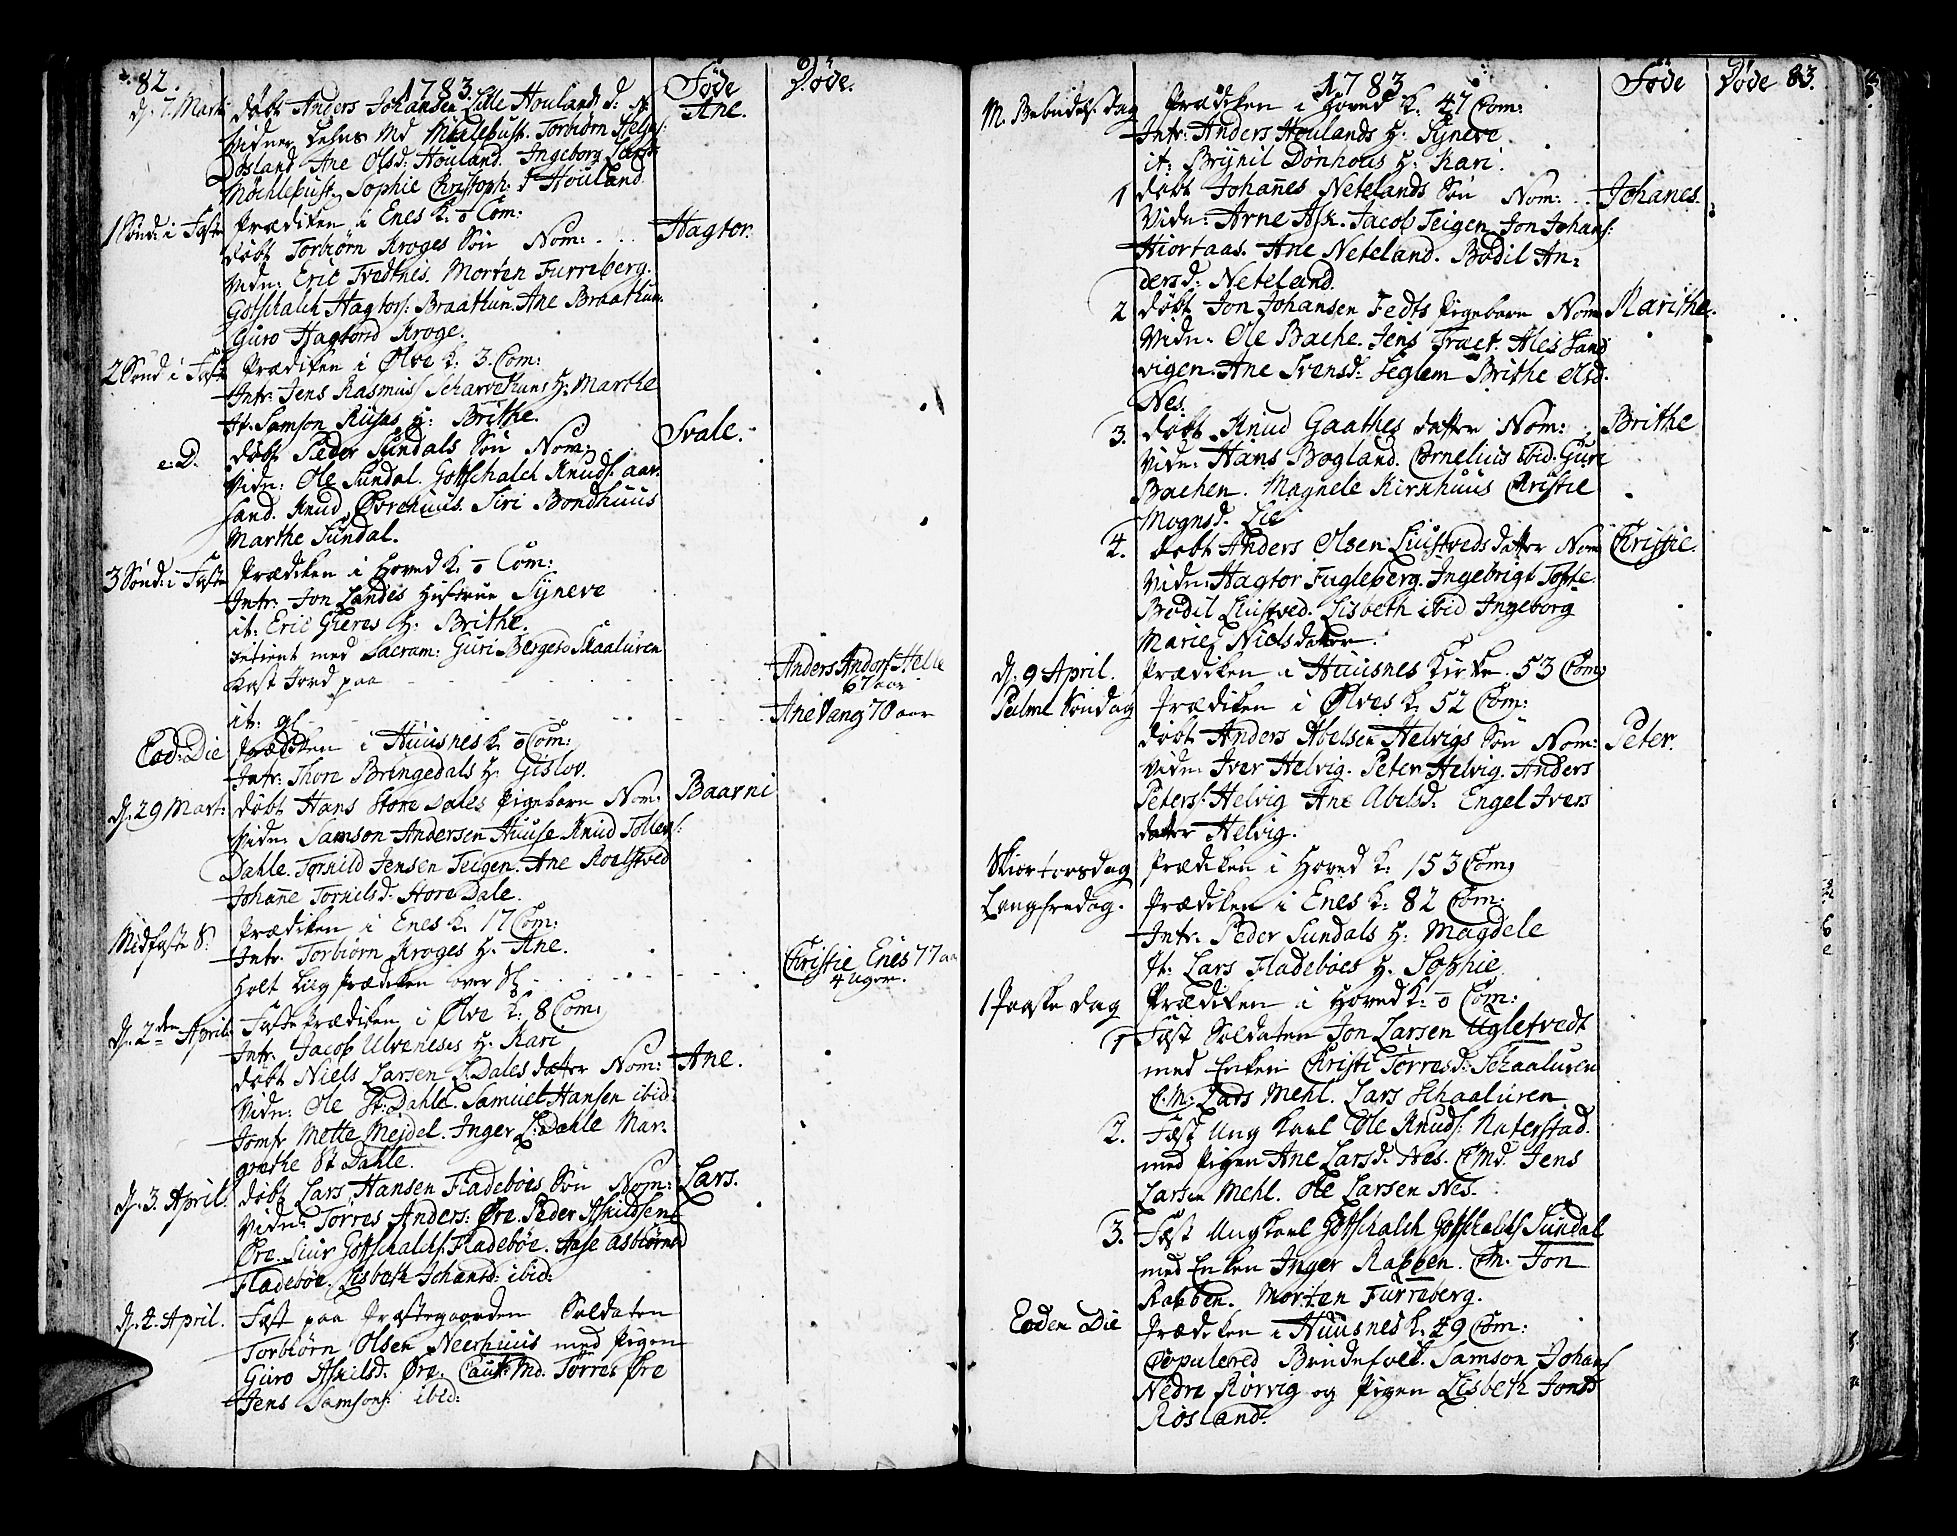 82.
1783.
Føde
Døde.
d. 7. Mart: døbt Anders Johansen Lille Houlands d: N:
Ane.
Vidner Md Mæhlehust. Torbiørn
Døsland Ane Olsd: Houland. Ingeborg
Møchlebust, Sophie Christoph: d Houland.
1 Sønd: i Faste Prædiken i Enes K. 0 Com:
døbt Torbiørn Kroges Søn Nom: . . . Hagtor.
Vidn: Eric Tvedtnes. Morten Furreberg.
Gotschalch Hagtors: Braathun. Ane Braathun.
Guro Hagtorsd Kroge.
2 Sønd i Faste Prædiken i Ølve K: 3. Com:
Intr. Jens Rasmus: H: Marthe
It. Samson Rusas H: Brithe.
e: D. døbt Peder Sundals Søn Nom: Svale.
Vidn: Ole Sundal. Gottschalch Knuds: aar:
sand. Knud Øvrehuus. Siri Bondhuus
Marthe Sundal.
3 Sønd: i Faste Prædiken i Hoved K: 0 Com:
Intr: Jon Landes Hustrue Syneve
it: Eric Gieres H: Brithe.
betient med Sacram: Guri Skaaluren
Kast Jord paa - - - - Anders Andors: Helle
67 aar
it: gl - - - Ane Vang 70 aar
Eod: Die Prædiken i Huusnes K. 0 Com:
Intr: Thore Bringedals H: Gislov.
d. 29 Mart: døbt Hans Store Dales Pigebarn Nom: Baarni
Vidn: Samson Andersen Huuse Knud Tollevs:
Dahle. Tornild Jensen Teigen. Ane Roeltved
Johane Tornilsd. Store Dale.
Midfaste S: Prædiken i Enes K. 17 Com:
Intr. Torbiørn Kroges H. Ane.
Holt Liig Prædiken over - - - Christie Enes 77 aar
4 uger.
d. 2den April. Faste Prædiken i Ølve K: 8 Com:
Intr. Jacob Ulveneses H: Kari
døbt Niels Larsen L: Dales datter Nom: Ane.
Vidn: Ole St: Dahle. Samuel Hansen ibid:
Jomfr Mette Mejdel. Inger L: Dahle Mar:
grethe St Dahle.
d. 3. April. døbt Lars Hansen Fladebøes Søn Nom: Lars.
Vidn: Torres Anders: Øre. Peder Askildsen
Øre. Siur Gottschalchs: Fladebøe. Aase asbiørnsd
Fladebøe. Lisbeth Johansd: ibid:
d. 4. April. Fæst paa Præstegaarden Soldaten
Torbiørn Olsen Neerhuus med Pigen
Guro Askilsd: Øre. Caut: Md: Torres Øre
Jens Samsons: ibid:
1783
Føde
Døde 83.
M. Bebudels: Dag Prædiken i Hoved K. 47 Com:
Intr: Anders Houlands H: Syneve
it: Brynil Dønhous H: Kari.
1 døbt Johanes Netelands Søn Nom: . . Johanes.
Vidn: Arne Ask. Jacob Teigen. Jon Johans:
Hiortaas. Ane Neteland. Bodil An:
dersd: Neteland.
2 døbt Jon Johansen Fedts Pigebarn Nom Marithe.
Vidn: Ole Bache. Jens Traet. Ales Sand
vigen. Ane Svensd: Seglem Brithe Olsd:
Nes.
3. døbt Knud Gaathes datter Nom: Brithe
Vidn: Hans Bogland. Cornelius ibid. Guri
Bachen. Magnele Kirkhuus Christie
Mognsd. Lie
4. døbt Anders Olsen Liustveds datter Nom Christie.
Vidn: Hagtor Fugleberg. Ingebrigt Tofte
Bodil Liustved. Lisbeth ibid Ingeborg
Marie Nielsdatter.
d. 9 April. Prædiken i Huusnes Kirke. 53 Com:
Palme Søndag Prædiken i Ølves K. 52 Com:
døbt Anders Abelsen Helvigs Søn Nom: Peter.
Vidn: Iver Helvig. Peter Helvig. Anders
Peters: Helvig Ane Abelsd: Engel Ivers
datter Helvig.
Skiertorsdag Prædiken i Hoved K. 153 Com:
Langfredag. Prædiken i Enes K: 82 Com:
Intr. Peder Sundals H: Magdele
It: Lars Fladebøes H. Sophie
1 Paaske dag Prædiken i Hoved K: 0 Com:
1 Fæst Soldaten Jon Larsen Ugletvedt
med Enken Christi Torresd: Schaaluren
C. M: Lars Mehl. Lars Schaaluren
2. Fæst Ung Karl Ole Knuds: Naterstad.
med Pigen Ane Larsd: Nes. C Md. Jens
Larsen Mehl. Ole Larsen Nes.
3. Fæst Ungkarl Gottschalch Gottschalchs Sundal
med Enken Inger Rabben. CM. Jon
Rabben. Morten Furreberg.
Eoden Die Prædiken i Huusnes K. 49 Com:
Copulered Brudefolk. Samson Johans
Nedre Rørvig og Pigen Lisbeth Jonsd
Røsland.